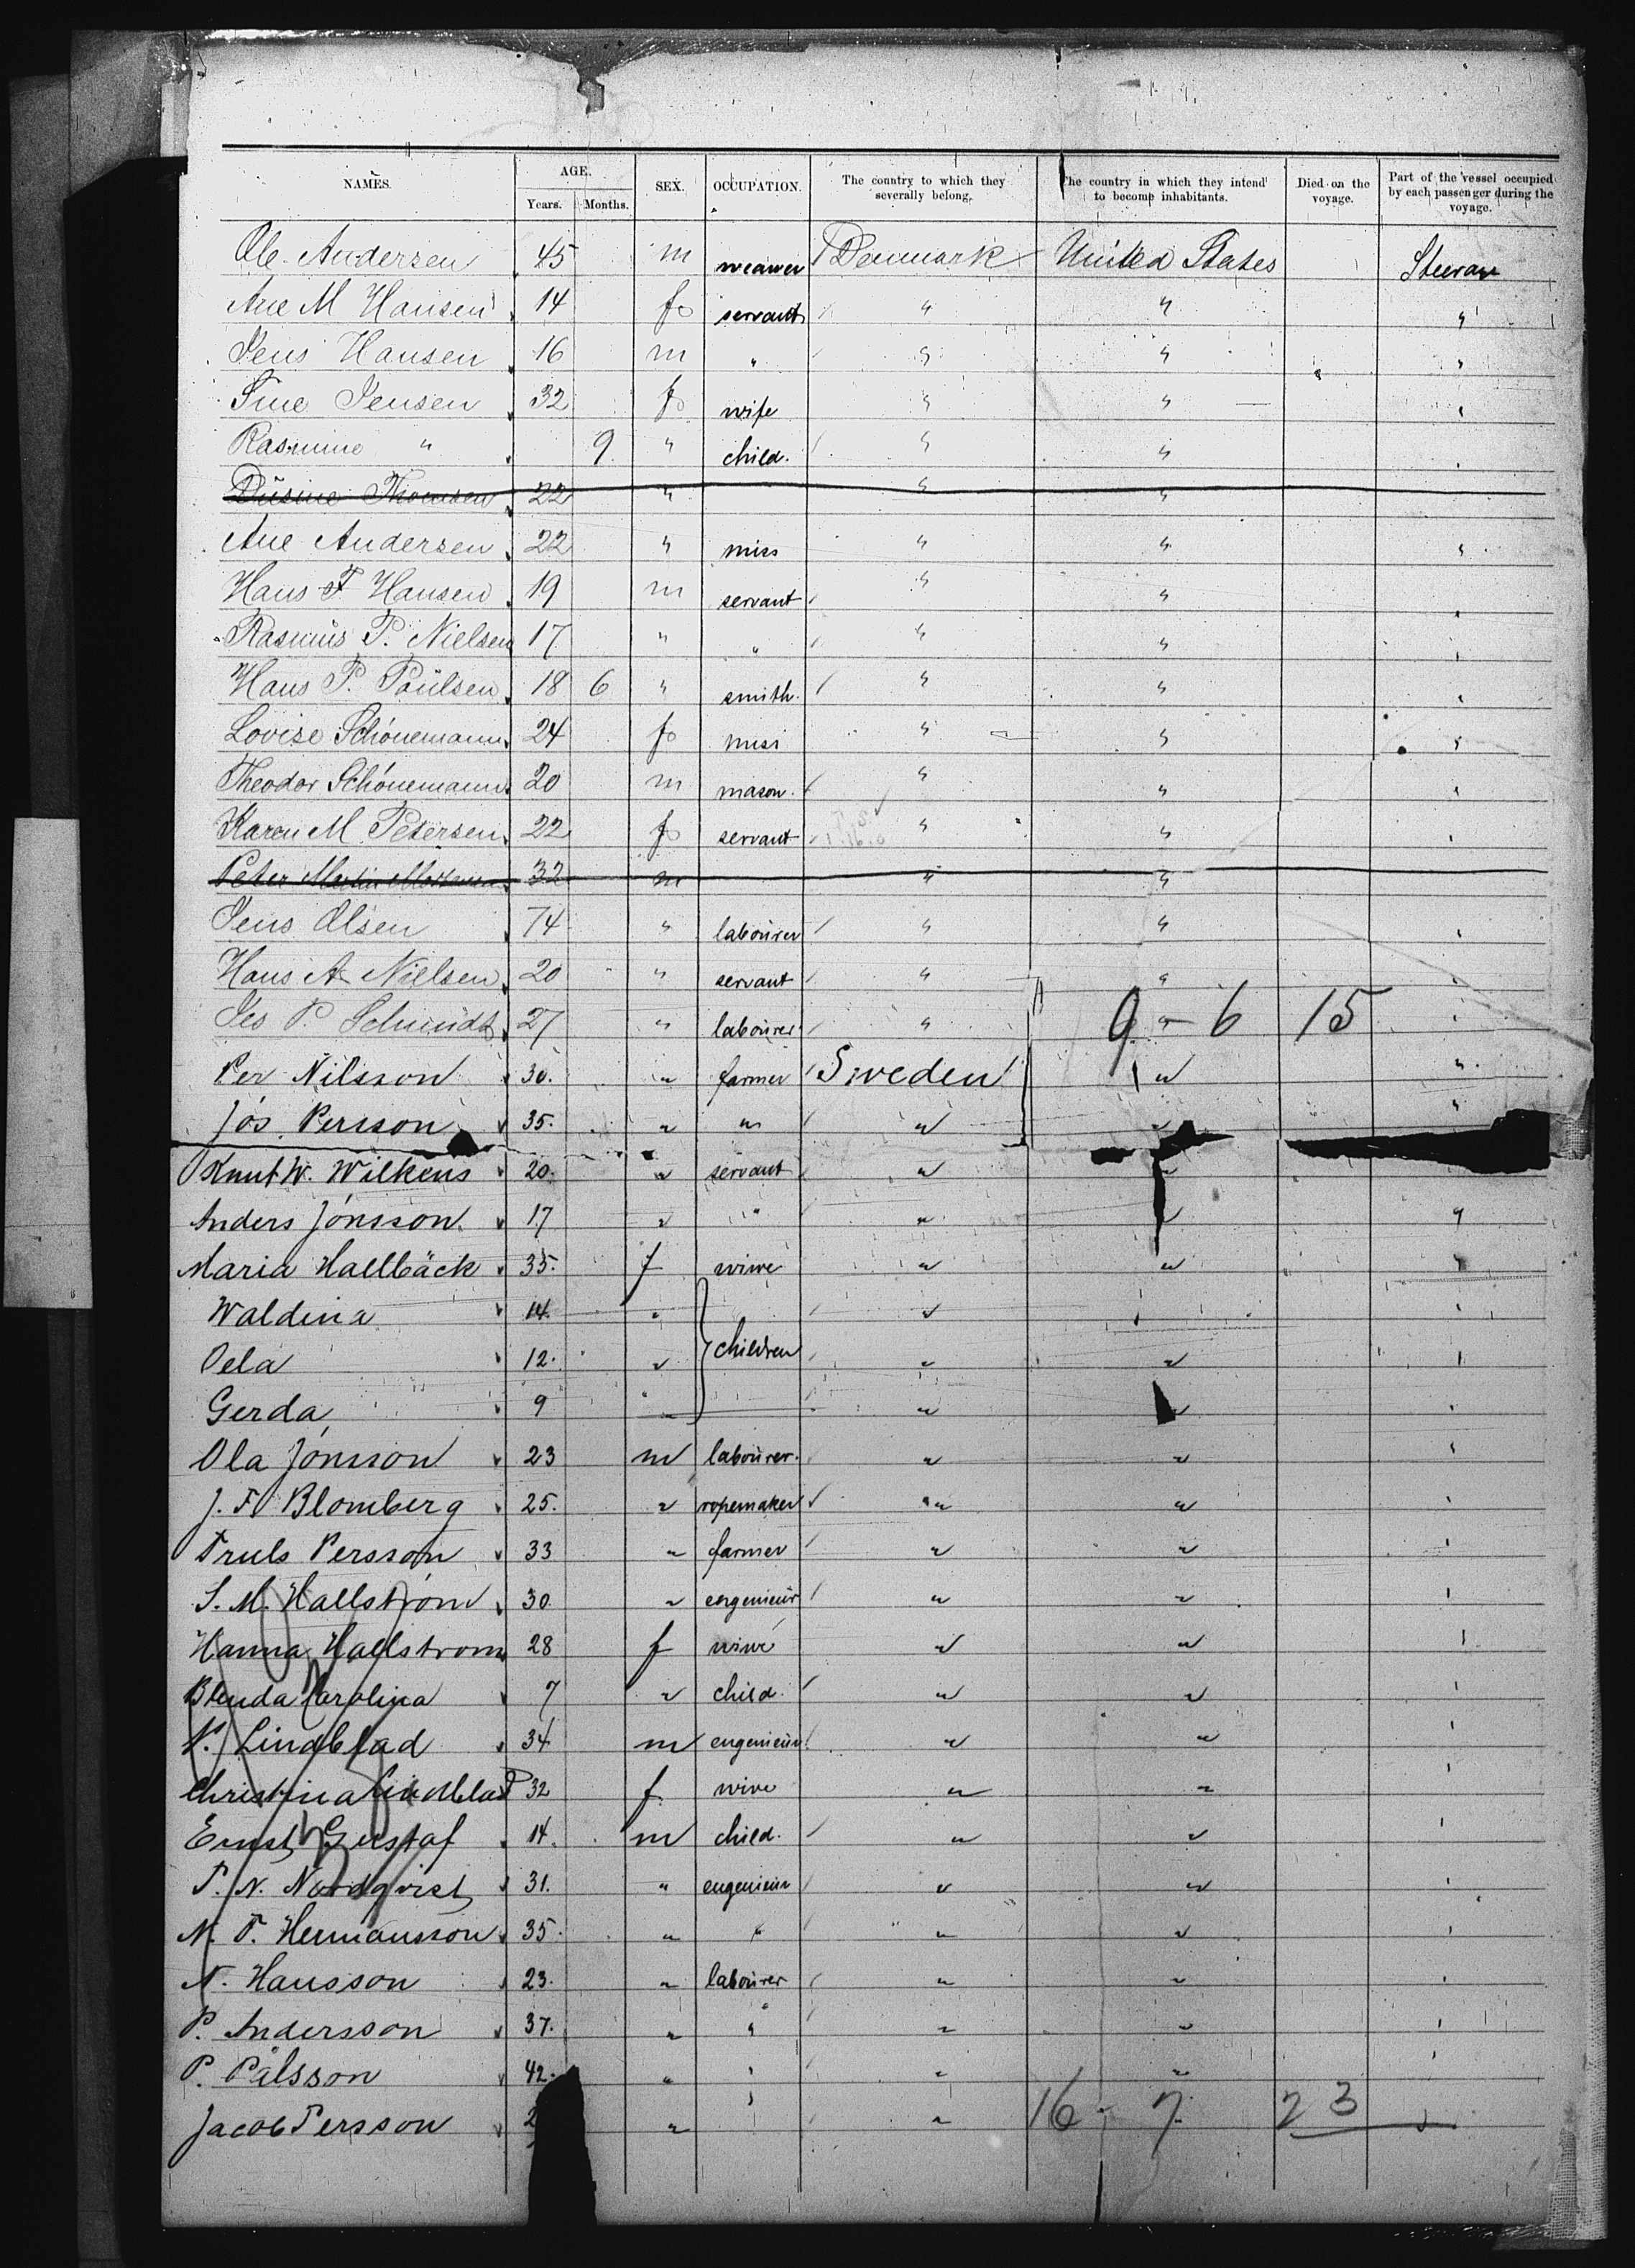 NAMES. AGE. SEX. OCCUPATION. The country to which they severally belong. The country in which they intend to become inhabitants. Died on the voyage. Part of the vessel occupied by each passenger during the voyage.
Years. Months.
Ole Andersen 45 m weawer Denmark United States
Ane M Hansen 14 f servant " " "
Jens Hansen 16 m " " " "
Sine Jensen 32 f wife " " "
Rasmine " 9 " child. " "
Thomsen 22 " " "
Ane Andersen 22 " miss " " "
Hans F Hansen 19 m servant " " "
Rasmus P. Nielsen 17 " " " " "
Hans P. Poülsen 18 6 " smith. " " "
Lovise Schönemann 24 f miss " " "
Theodor Schönemann 20 m mason. " " "
Karen M Petersen 22 f servant " " "
Peter Martin 32 m " "
Jens Olsen 74 " laboürer " " "
Hans A Nielsen 20 " servant " " "
Jes P. Schmidt 27 " laboürer " 9 - 6 15 "
Per Nilsson 30. " farmer Sweden " "
Jos. Persson 35. " " " " "
Knut W. Wilkens 20. " servant " "
Anders Jonsson 17 " " " " "
Maria Hallbäck 35. f wiwe " " "
Waldina 14. " " " "
Oela 12. " children " " "
Gerda 9 " " " "
Ola Jonsson 23 m laboürer. " " "
J. F. Blomberg 25. " ropemaker " " "
Truls Persson 33 " farmer " " "
S. M. Hallstrom 30 " engenieür " " "
Hanna Hallstrom 28 f wiwe " " "
Blenda Carolina 7 " child. " " "
P. Lindblad 34 m engenieür " " "
Christina Lindblad 32 f wive " " "
Ernst Gustaf 14. m child. " " "
P. N. Nordqvist 31. " engenieür " " "
N. P. Hermansson 35. " " " " "
N. Hansson 23. " laboürer " " "
P. Andersson 37. " " " " "
P. Pålsson 42. " " " " "
Jacob Persson 2 " " " 16 - 7 23